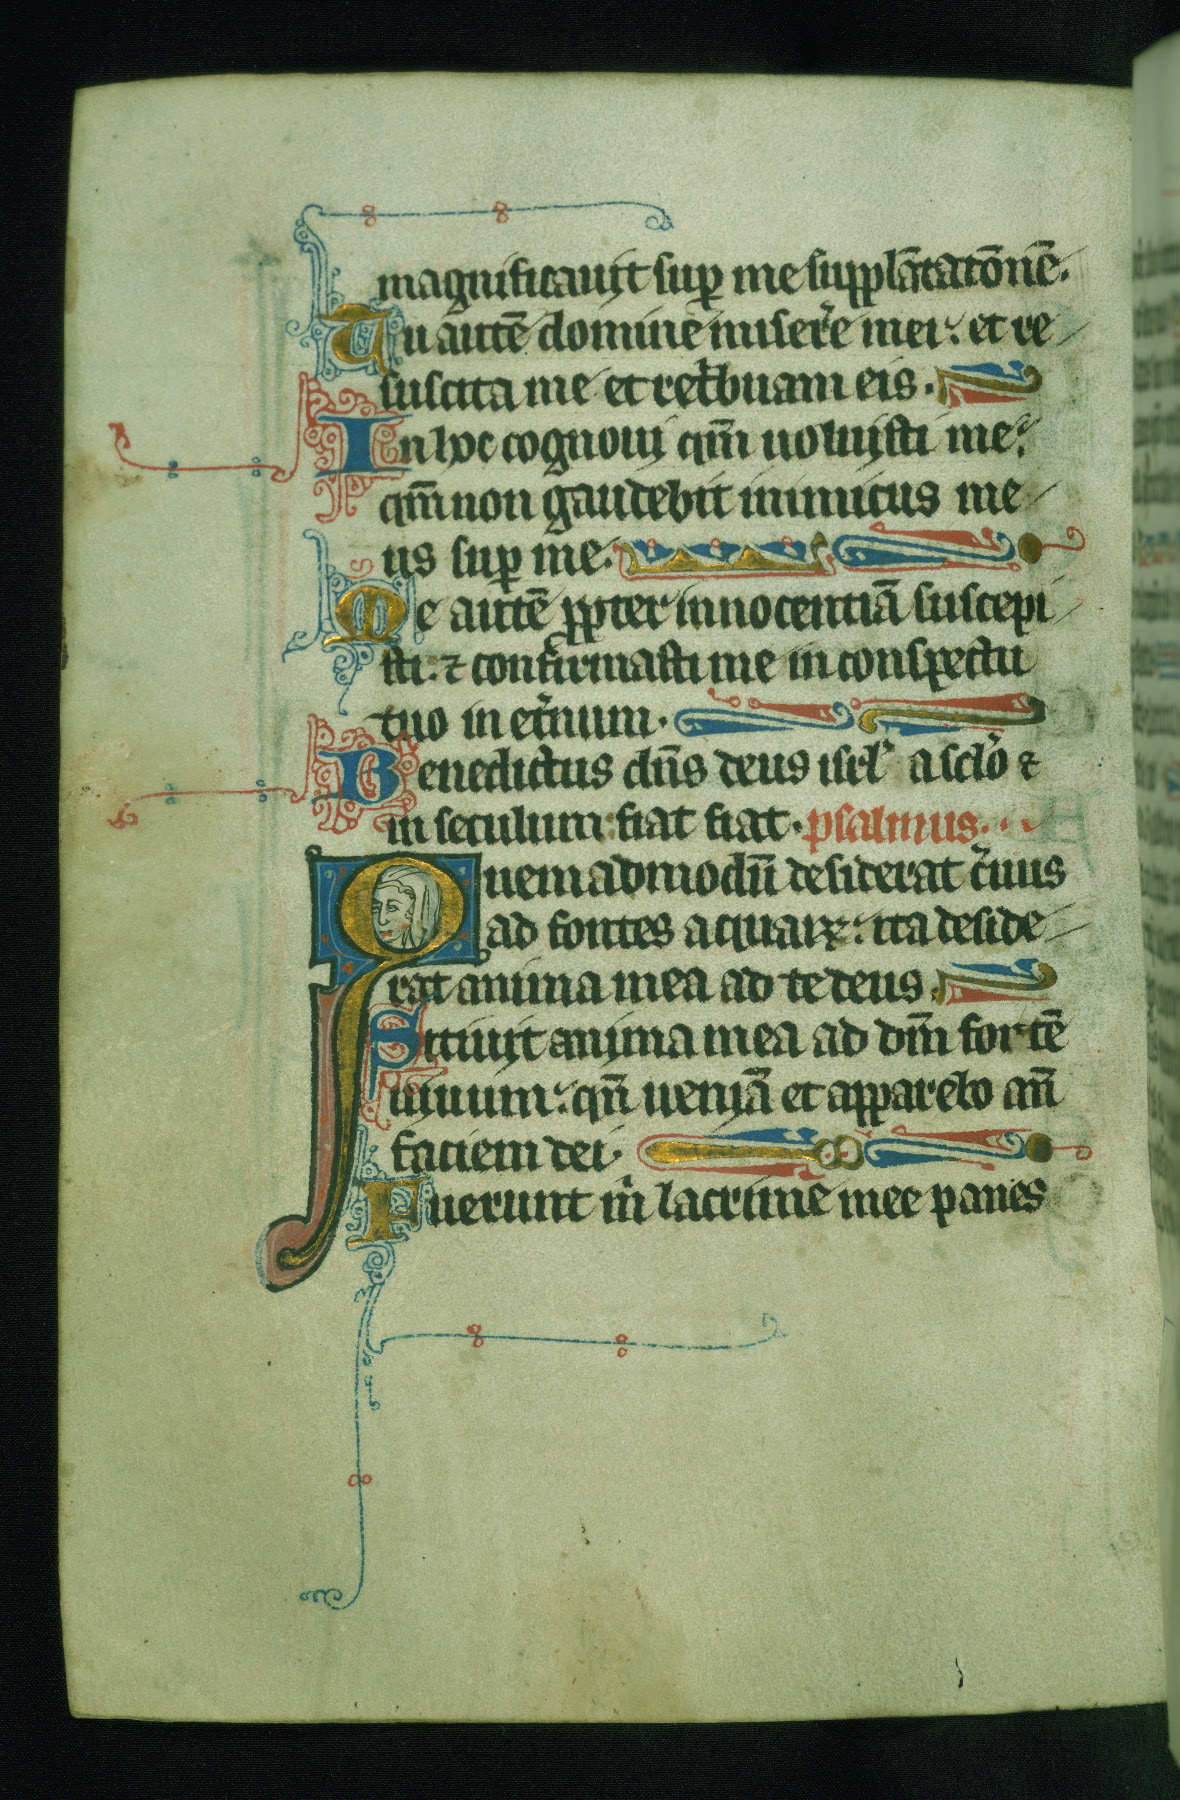 magnificauit sup̲ me supplãtatõnẽ.
Tu autẽ domine miserˀe mei: et re
suscita me et ret̾buam eis.
In hoc cognoui qm̃ uoluisti me:
qm̃ non gaudebit inimicus me
us sup̲ me.
Me autẽ pp̲ter innocentiã suscepi
sti: ⁊ confirmasti me in conspectu
tuo in et̾num.
Benedictus dñs deus isrl̾ a sclo ⁊
in seculum fiat fiat. psalmus.
Quemadmodũ desiderat c̾uus
ad fontes aquarꝝ: ita deside
rat anima mea ad te deus.
Sitiuit anima mea ad dm̃ fortẽ
uiuum: qñ ueniã et apparebo añ
faciem dei.
Fuerunt m̾ lacrime mee panes